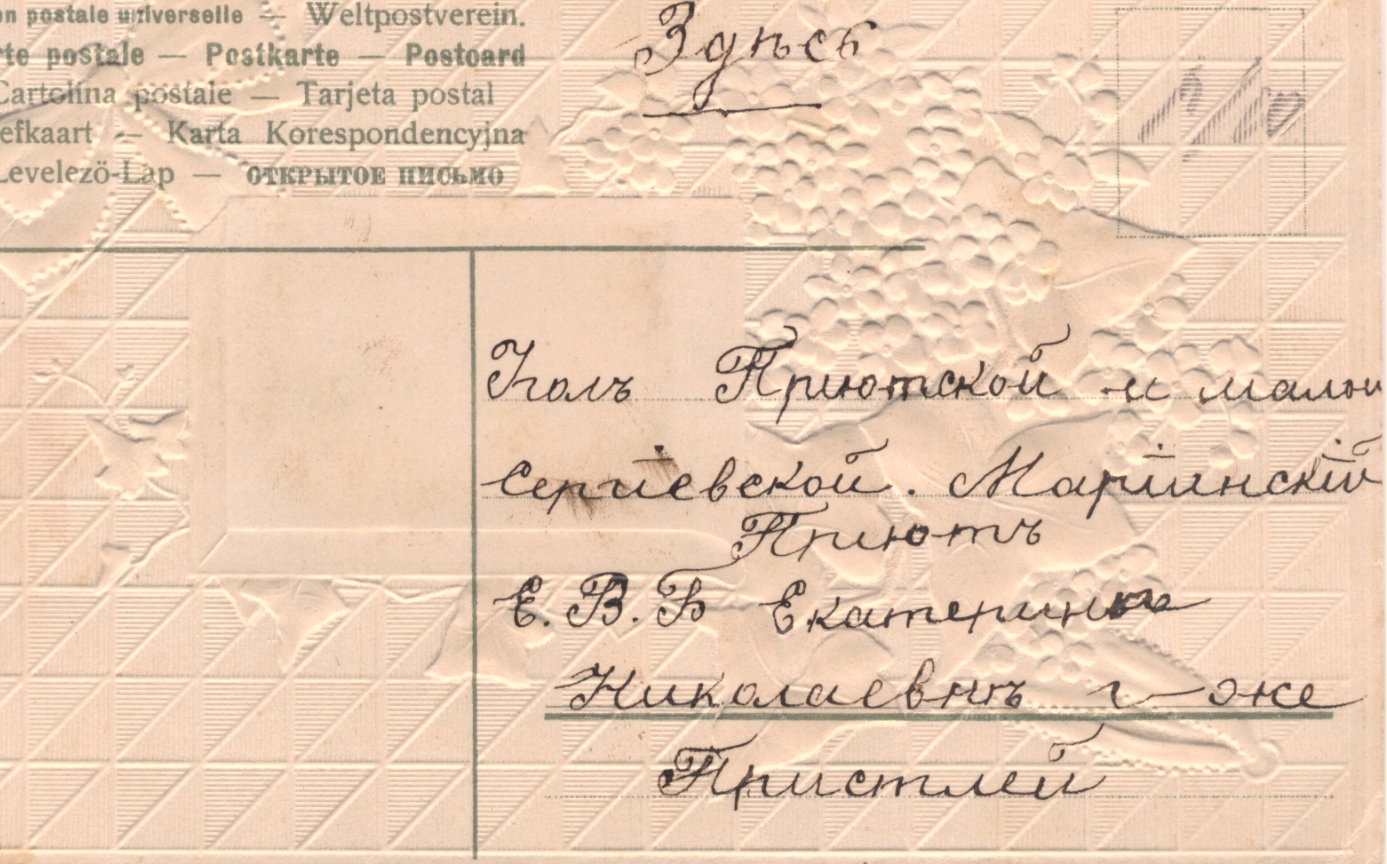 on postale universelle — Weltpostverein.
rte postale — Postkarte — Postcard
Cartolina postale — Tarjeta postal
efkaart — Karta Korespondencyjna
Levelezö-Lap — ОТКРЫТОЕ ПИСЬМО
Здѣсь
Уголъ Приютской и малой
Сергіевской. Маріинскій
Приютъ
Е. В. Б Екатеринѣ
Николаевнѣ г-же
Пристлей